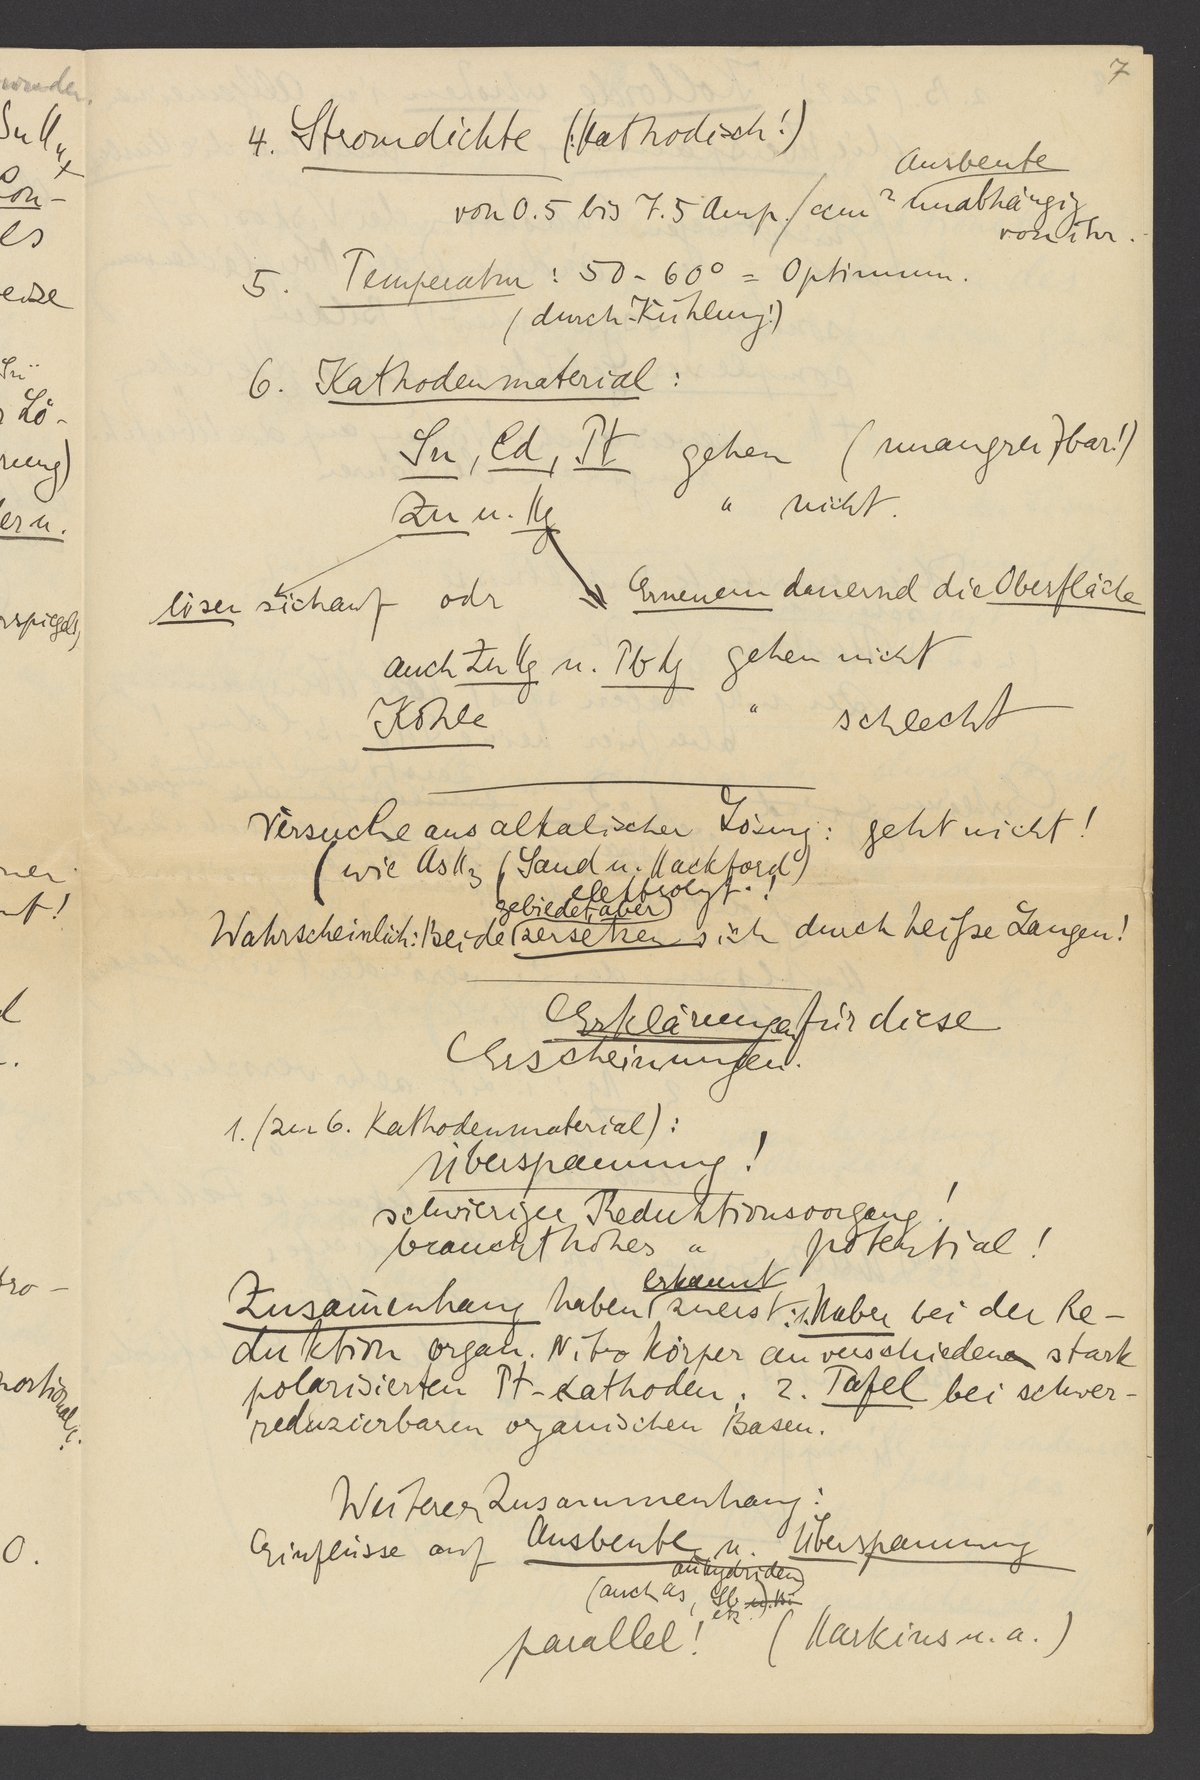 7
4. Stromdichte (: Kathodisch!)
von 0.5 bis 7.5 Amp./qcm² Ausbeute unabhängig
von ihr.
5. Temperatur: 50-60° = Optimum.
(durch Kühlung!)
6. Kathodenmaterial:
Sn, Cd, Pt gehen (unangreifbar!)
Zn u. Hg " nicht.
lösen sich auf odr Erneuern dauernd die Oberfläche
auch ZnHg u. PbHg gehen nicht
Kohle " schlecht
Versuche aus alkalischer Lösung: geht nicht!
(wie AsH3 (Sand u. Hackford)
elektrolyt.!
gebildet, aber
Wahrscheinlich: Beide zersetzen sich durch heiße Laugen!
Erklärungen für diese
Erscheinungen.
1. (zu 6. Kathodenmaterial):
Überspannung!
schwieriger Reduktionsvorgang!
braucht hohes " potential!
erkannt
Zusam̅enhang haben zuerst: 1. Haber bei der Re-
duktion organ. Nitrokörper an verschieden stark
polarisierten Pt-Kathoden. 2. Tafel bei schwer-
reduzierbaren organischen Basen.
Weiterer Zusammenhang:
Einflüsse auf Ausbeute u. Überspannung
anhydriden
(auch As, Sb u. Bi)
etc.
parallel! (Harkins u. a.)
wurden.
SnH4
Lö-
rung)
ern.
erspiegels,
tro-
portional
0.